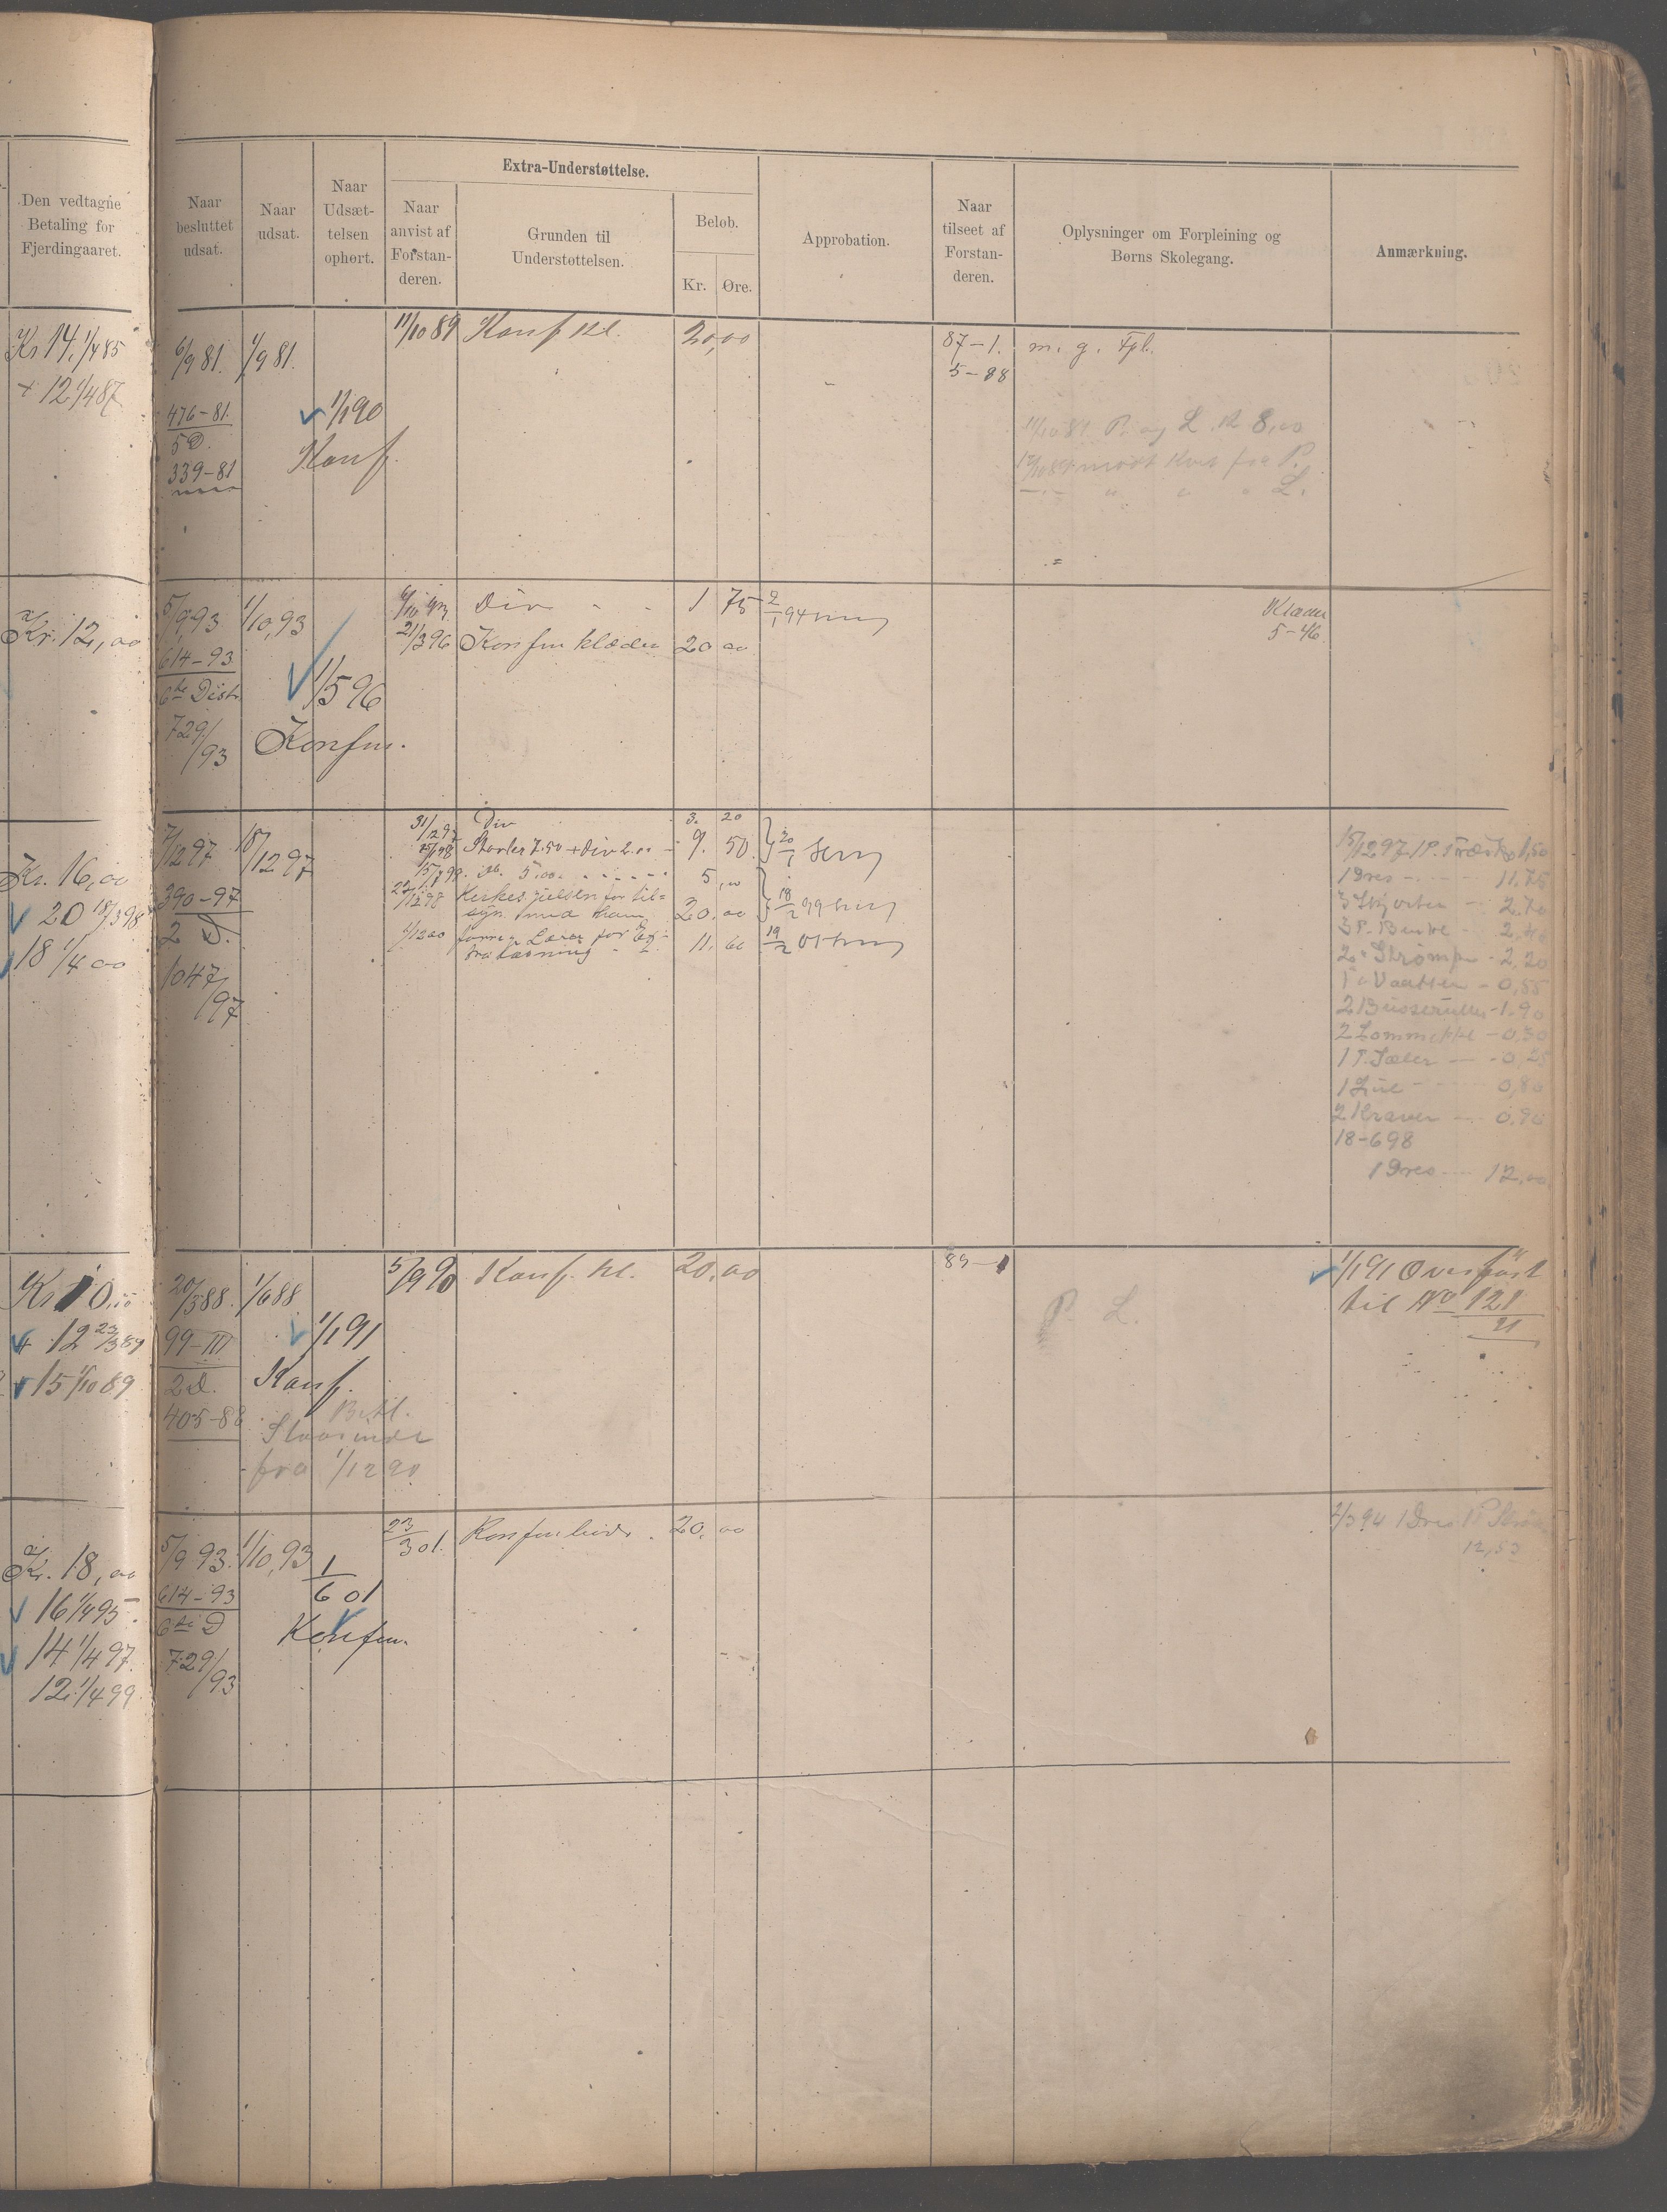 Den vedtagne
Betaling for
Fjerdingaaret.
Naar
besluttet
udsat.
Naar
udsat.
Naar
Udsæt-
telsen
ophørt.
Extra-Understøttelse.
Naar
anvist af
Forstan-
deren.
Grunden til
Understøttelsen.
Beløb.
Kr.
Øre.
Approbation.
Naar
tilseet af
Forstan-
deren.
Oplysninger om Forpleining og
Børns Skolegang.
Anmærkning.
Kr 14, 1/4 85
+ 12 1/4 87
6/9 81.
1/9 81.
476-81.
5 D.
339-81
1/1 90
Konf.
11/10 89 Konf kl. 20,00
87-1.
5-88
m. g. Fpl.
11/10 89 P. og L. 8,00
Kr. 12,00
5/9 93
1/10,93
614-93
6te Distr.
729/93
1/5 96
Konfm.
Div 1 75
2/1 94
21/3 96 Konfm klæder 20 00
Klæder
5-46
Kr. 16,00
20 18/3 98
18 1/4 00
7/12 97
18/12 97
390-97
2 D.
1047/97
31/12 97 Div 3. 20
Støvler 7.50 + Div 2.00 9. 50
20/1
15/1 99. 5.00 5,00
22/12 98 for til-
syn med ham 20,00
18/2 99
1/12 00 Lærer for Ex-
tra Læsning 11. 60
19/2 01
15/12 97 1 P. Træsko 1,50
1 Dres 11.75
3 Skjorter 2.70
3 P. Buxe 2,40
2 " Strømper 2,20
1 " Vaatter 0,55
2 Busseruller 1.90
2 Lommetkl 0,30
1 P. Sæler 0,25
1 Lue 0,80
2 Kraver 0,90
18-6 98
1 Dres 12,00
Kr 10,00
+ 12 23/3 89
+ 15 1/10 89
20/5 88.
1/6 88
99-III
2 D.
405-88
1/1 91
Konf.
Betl.
fra 1/12 90
5/9 90 Konf. kl. 20,00
89-1
P. L.
1/1 91 Overført
til No 121
21
Kr. 18,00
16 1/4 95
14 1/4 97.
12. 1/4 99
5/9 93.
1/10,93
614-93
6te D
729/93
1/6 01
Konfm.
23/3 01. 20,00
2/3 94 1 Dres 1 P Strøm
12,50